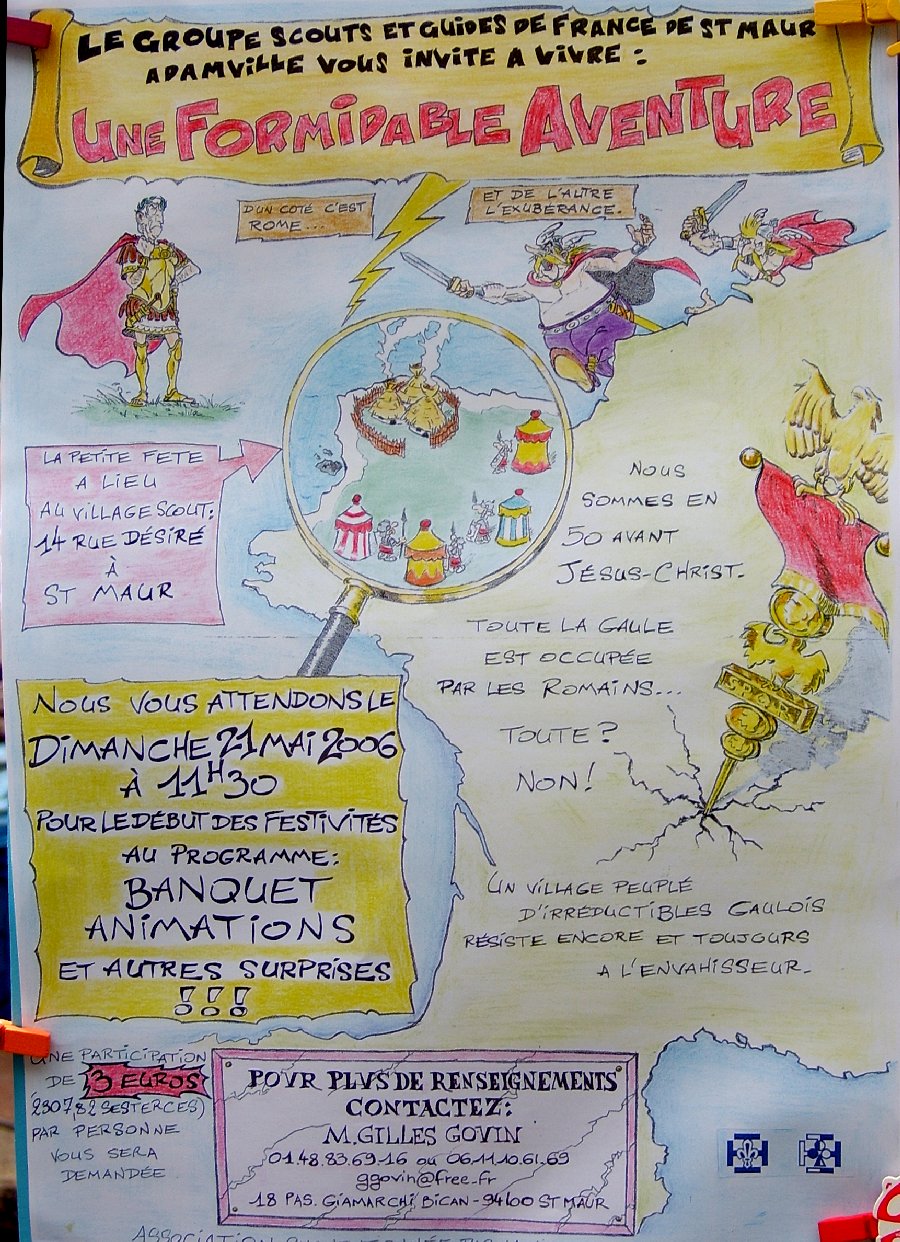 LE GROUPE SCOUTS ET GUIDES DE FRANCE DE ST MAUR
ADAMVILLE VOUS INVITE A VIVRE :
UNE FORMIDABLE AVENTURE
D'UN COTÉ C'EST
ROME...
ET DE L'AUTRE
L'EXUBÉRANCE.
LA PETITE FETE
A LIEU
AU VILLAGE SCOUT:
14 RUE DÉSIRÉ
À
ST MAUR
NOUS
SOMMES EN
50 AVANT
JÉSUS-CHRIST.
TOUTE LA GAULE
EST OCCUPÉE
PAR LES ROMAINS...
TOUTE?
NON!
UN VILLAGE PEUPLÉ
D'IRRÉDUCTIBLES GAULOIS
RÉSISTE ENCORE ET TOUJOURS
A L'ENVAHISSEUR.
NOUS VOUS ATTENDONS LE
DIMANCHE 21 MAI 2006
À 11H30
POUR LE DÉBUT DES FESTIVITÉS
AU PROGRAMME:
BANQUET
ANIMATIONS
ET AUTRES SURPRISES
!!!
UNE PARTICIPATION
DE 3 EUROS
2307,82 SESTERCES)
PAR PERSONNE
VOUS SERA
DEMANDÉE
POVR PLVS DE RENSEIGNEMENTS
CONTACTEZ:
M. GILLES GOVIN
01.48.83.69.16 ou 06.11.10.61.69
ggovin@free.fr
18 PAS. GIAMARCHI BICAN - 94100 ST MAUR
ASSOCIATION